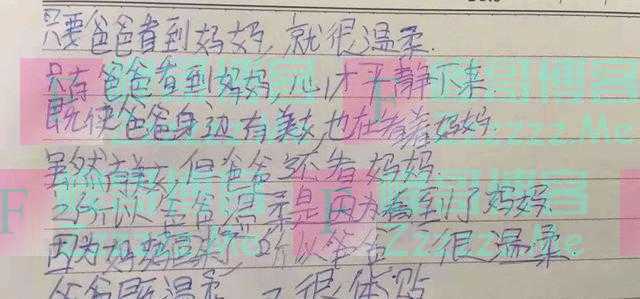 只要爸爸看到妈妈,就很温柔.
只有爸爸看到妈妈,心才平静下来.
既使爸爸身边有美女,也在看着妈妈.
虽然有美女,但爸爸还看妈妈.
之所以爸爸温柔是因为看到了妈妈.
因为妈妈回来了所以爸爸 很温柔.
爸爸既温柔 又很体贴